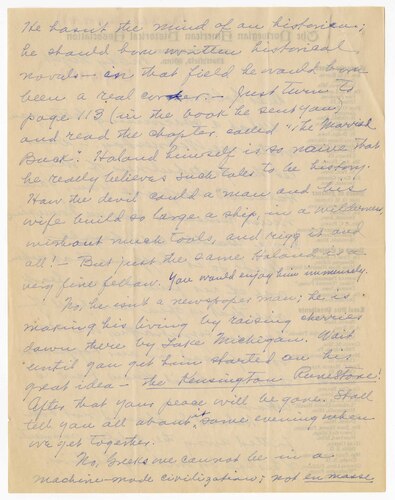 He hasn't the mind of an historian;
he should have written historical
novels — in that field he would have
been a real corker. — Just turn to
page 113 (in the book he sent you)
and read the chapter called "The
Buck". Holand himself is so naive that
he really believes such tales to be history.
How the devil could a man and his
wife build so large a ship, in a wilderness,
without much tools, and rigg it and
all! — But just the same Holand is a
very fine fellow. You would enjoy him immensely.
No, he isn't a newspaper man; he is
making his living by raising cherries
down there by Lake Michigan. Wait
until you get him started on his
great idea — the Kensington Runestone!
After that your peace will be gone. Shall
tell you all about it some evening when
we get together.
No, Greeks we cannot be in a
machine-made civilization; not en masse